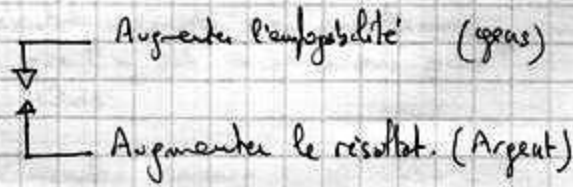 Augmenter l'employabilité (gens)
Augmenter le résultat. (Argent)